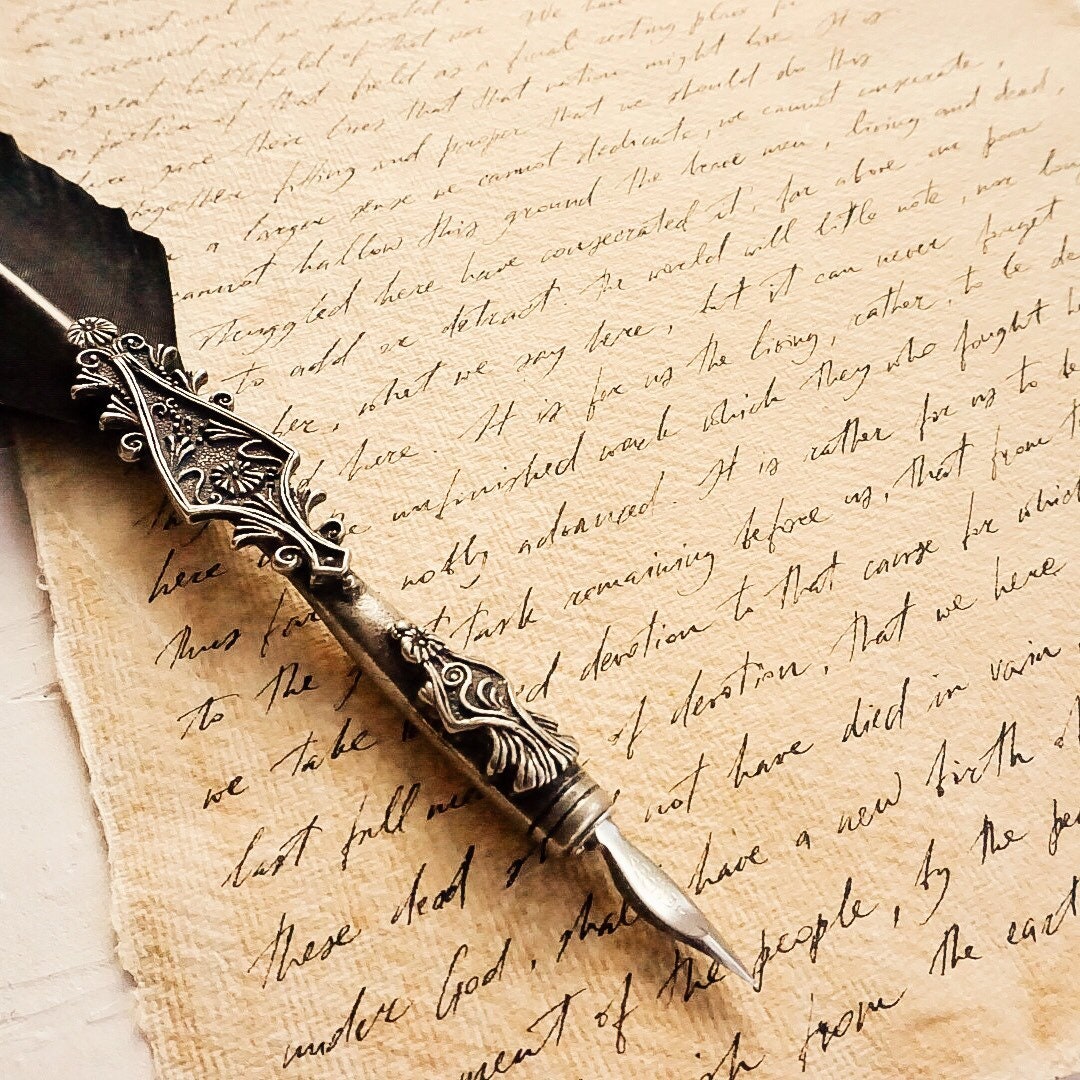 great battlefield of that war We have
portion of that field as a final resting place for
gave their lives that that nation might live It is
fitting and proper that we should do this
a larger sense we cannot dedicate, we cannot consecrate,
cannot hallow this ground the brave men, living and dead,
struggled here have consecrated it, far above our poor
to add or detract. The world will little note, nor long
what we say here, but it can never forget
here. It is for us the living, rather, to be de
unfinished work which they who fought
here nobly advanced. It is rather for us to be
thus far task remaining before us, that from
to the devotion to that cause for which
we take of devotion, that we here
last full not have died in vain,
these dead have a new birth of
under God, shall people, by the
ment of the from the eart